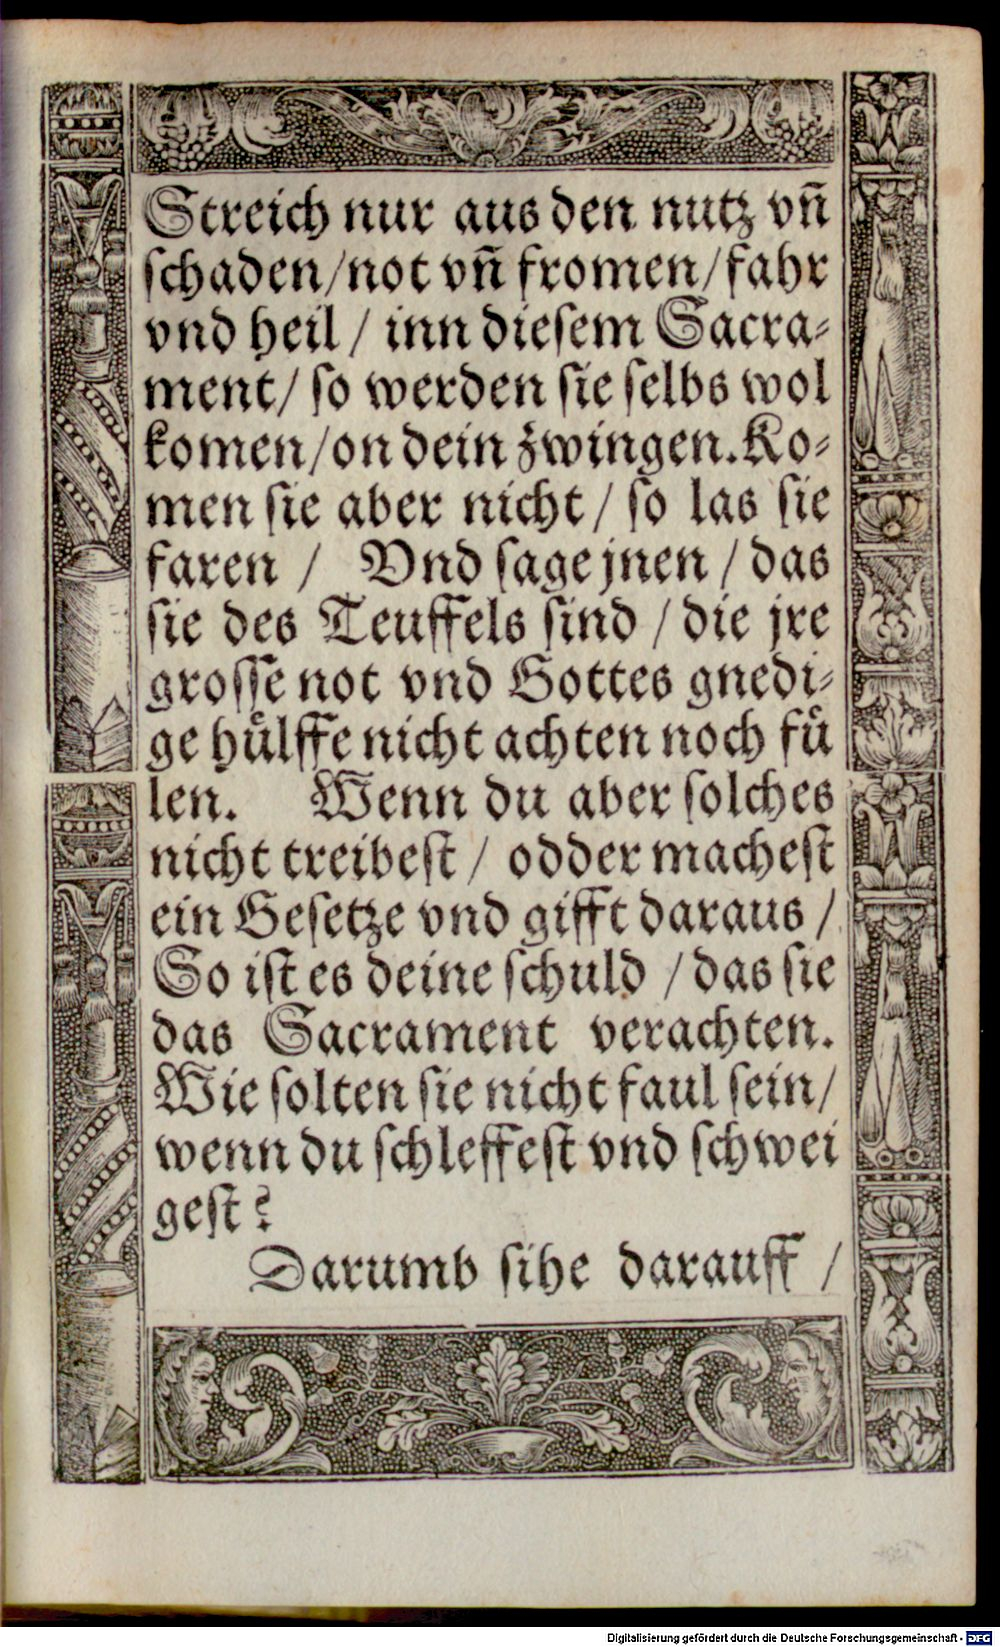 Streich nur aus den nutz vñ
schaden/not vñ fromen/fahr
vnd heil / inn diesem Sacra⸗
ment/ so werden sie selbs wol
komen/on dein zwingen.Ko⸗
men sie aber nicht / so las sie
faren / Vnd sage jnen / das
sie des Teuffels sind / die jre
grosse not vnd Gottes gnedi⸗
ge hülffe nicht achten noch fü
len. Wenn du aber solches
nicht treibest / odder machest
ein Gesetze vnd gifft daraus /
So ist es deine schuld / das sie
das Sacrament verachten.
Wie solten sie nicht faul sein/
wenn du schleffest vnd schwei
gest?
Darumb sihe darauff /
Digitalisierung gefördert durch die Deutsche Forschungsgemeinschaft - DFG